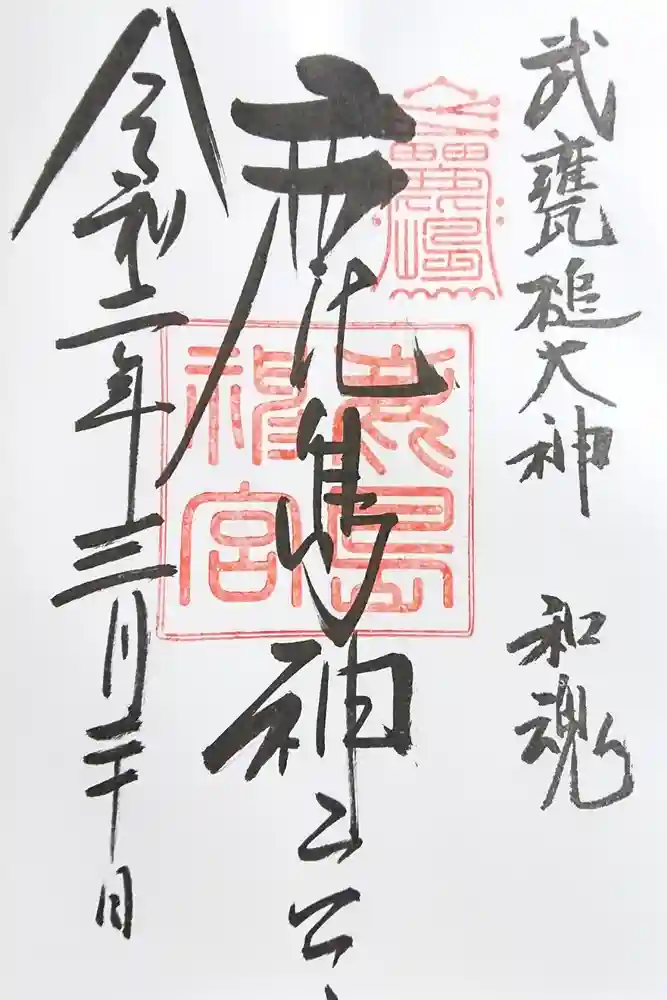 武甕槌大神　和魂
鹿島神宮
鹿島神宮
令和二年三月二十日